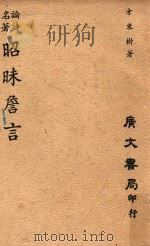 方東樹著
廣文書局印行
論詩
名著
昭昧詹言